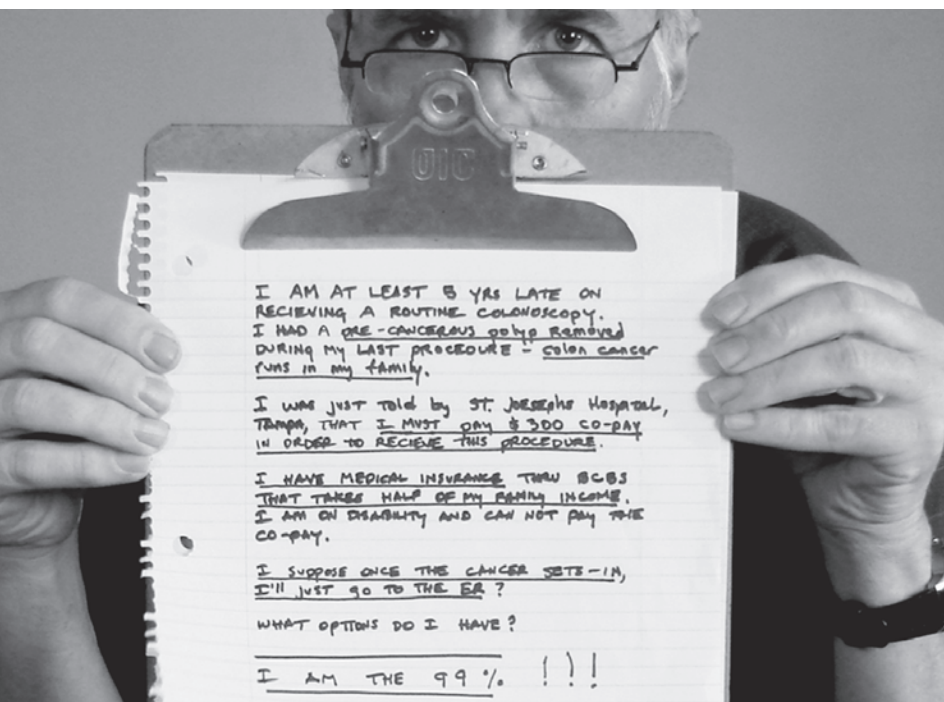 OIC
I AM AT LEAST 5 YRS LATE ON
RECIEVING A ROUTINE COLONOSCOPY.
I HAD A PRE-CANCEROUS polyp Removed
DURING MY LAST PROCEDURE - colon cancer
runs in my family.
I WAS JUST Told by ST. JOESEPHS HOSPITAL,
TAMPA, THAT I MUST PAY $300 CO-PAY
IN ORDER TO RECIEVE THIS PROCEDURE.
I HAVE MEDICAL INSURANCE THRU BCBS
THAT TAKES HALF OF MY FAMILY INCOME.
I AM ON DISABILITY AND CAN NOT PAY THE
CO-PAY.
I SUPPOSE ONCE THE CANCER SETS-IN,
I'll JUST go TO THE ER?
WHAT OPTIONS DO I HAVE?
I AM THE 99% !!!